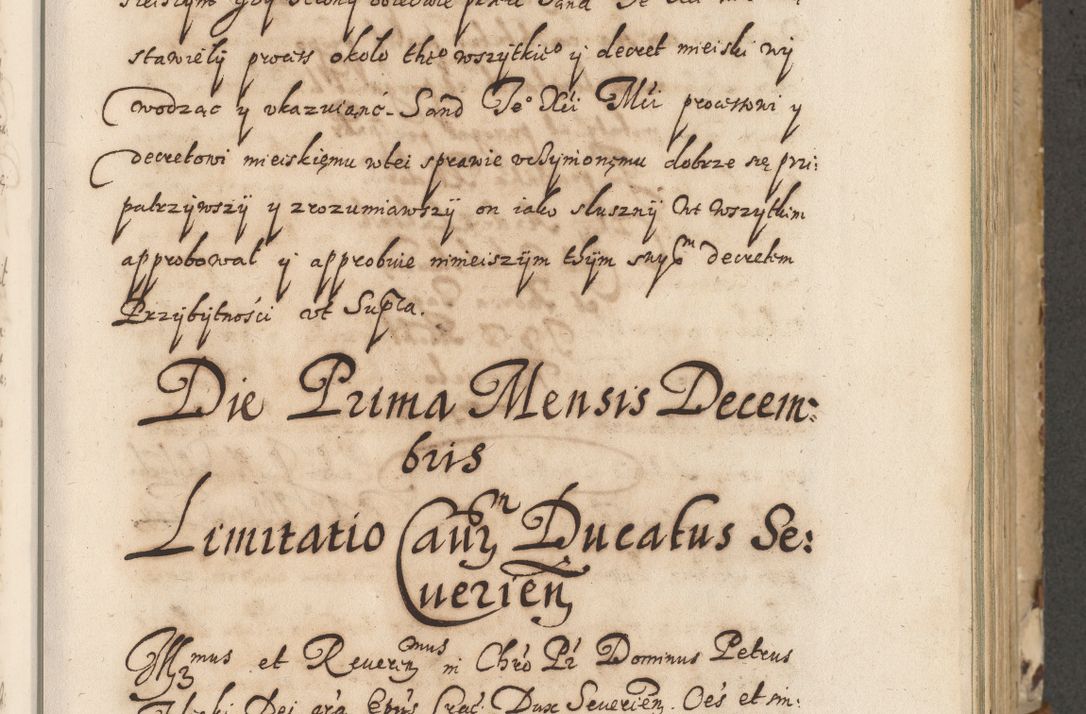 stawiely process około theº wszytkieº y decret mieiski wy
wodząc y vkazuiąnć. Sand Jeº Xći Mći processowi y
decretowi mieiskięmu wtei sprawie vczynionęmu dobrze się przi:
patrzywszÿ y zrozumiawszÿ on iako słusznÿ we wszytkim
approbował y approbuie ninieiszÿm thÿm swym decretem
Przybytności vt Supra.
Die Prima Mensis Decem:
bris
Limitatio Caur Ducatus Se:
verien
Illmus et Reverenmus in Chrō Pr Dominus Petrus
Dei grā Epūs Crac: Dux Severien. Oēs et sin: